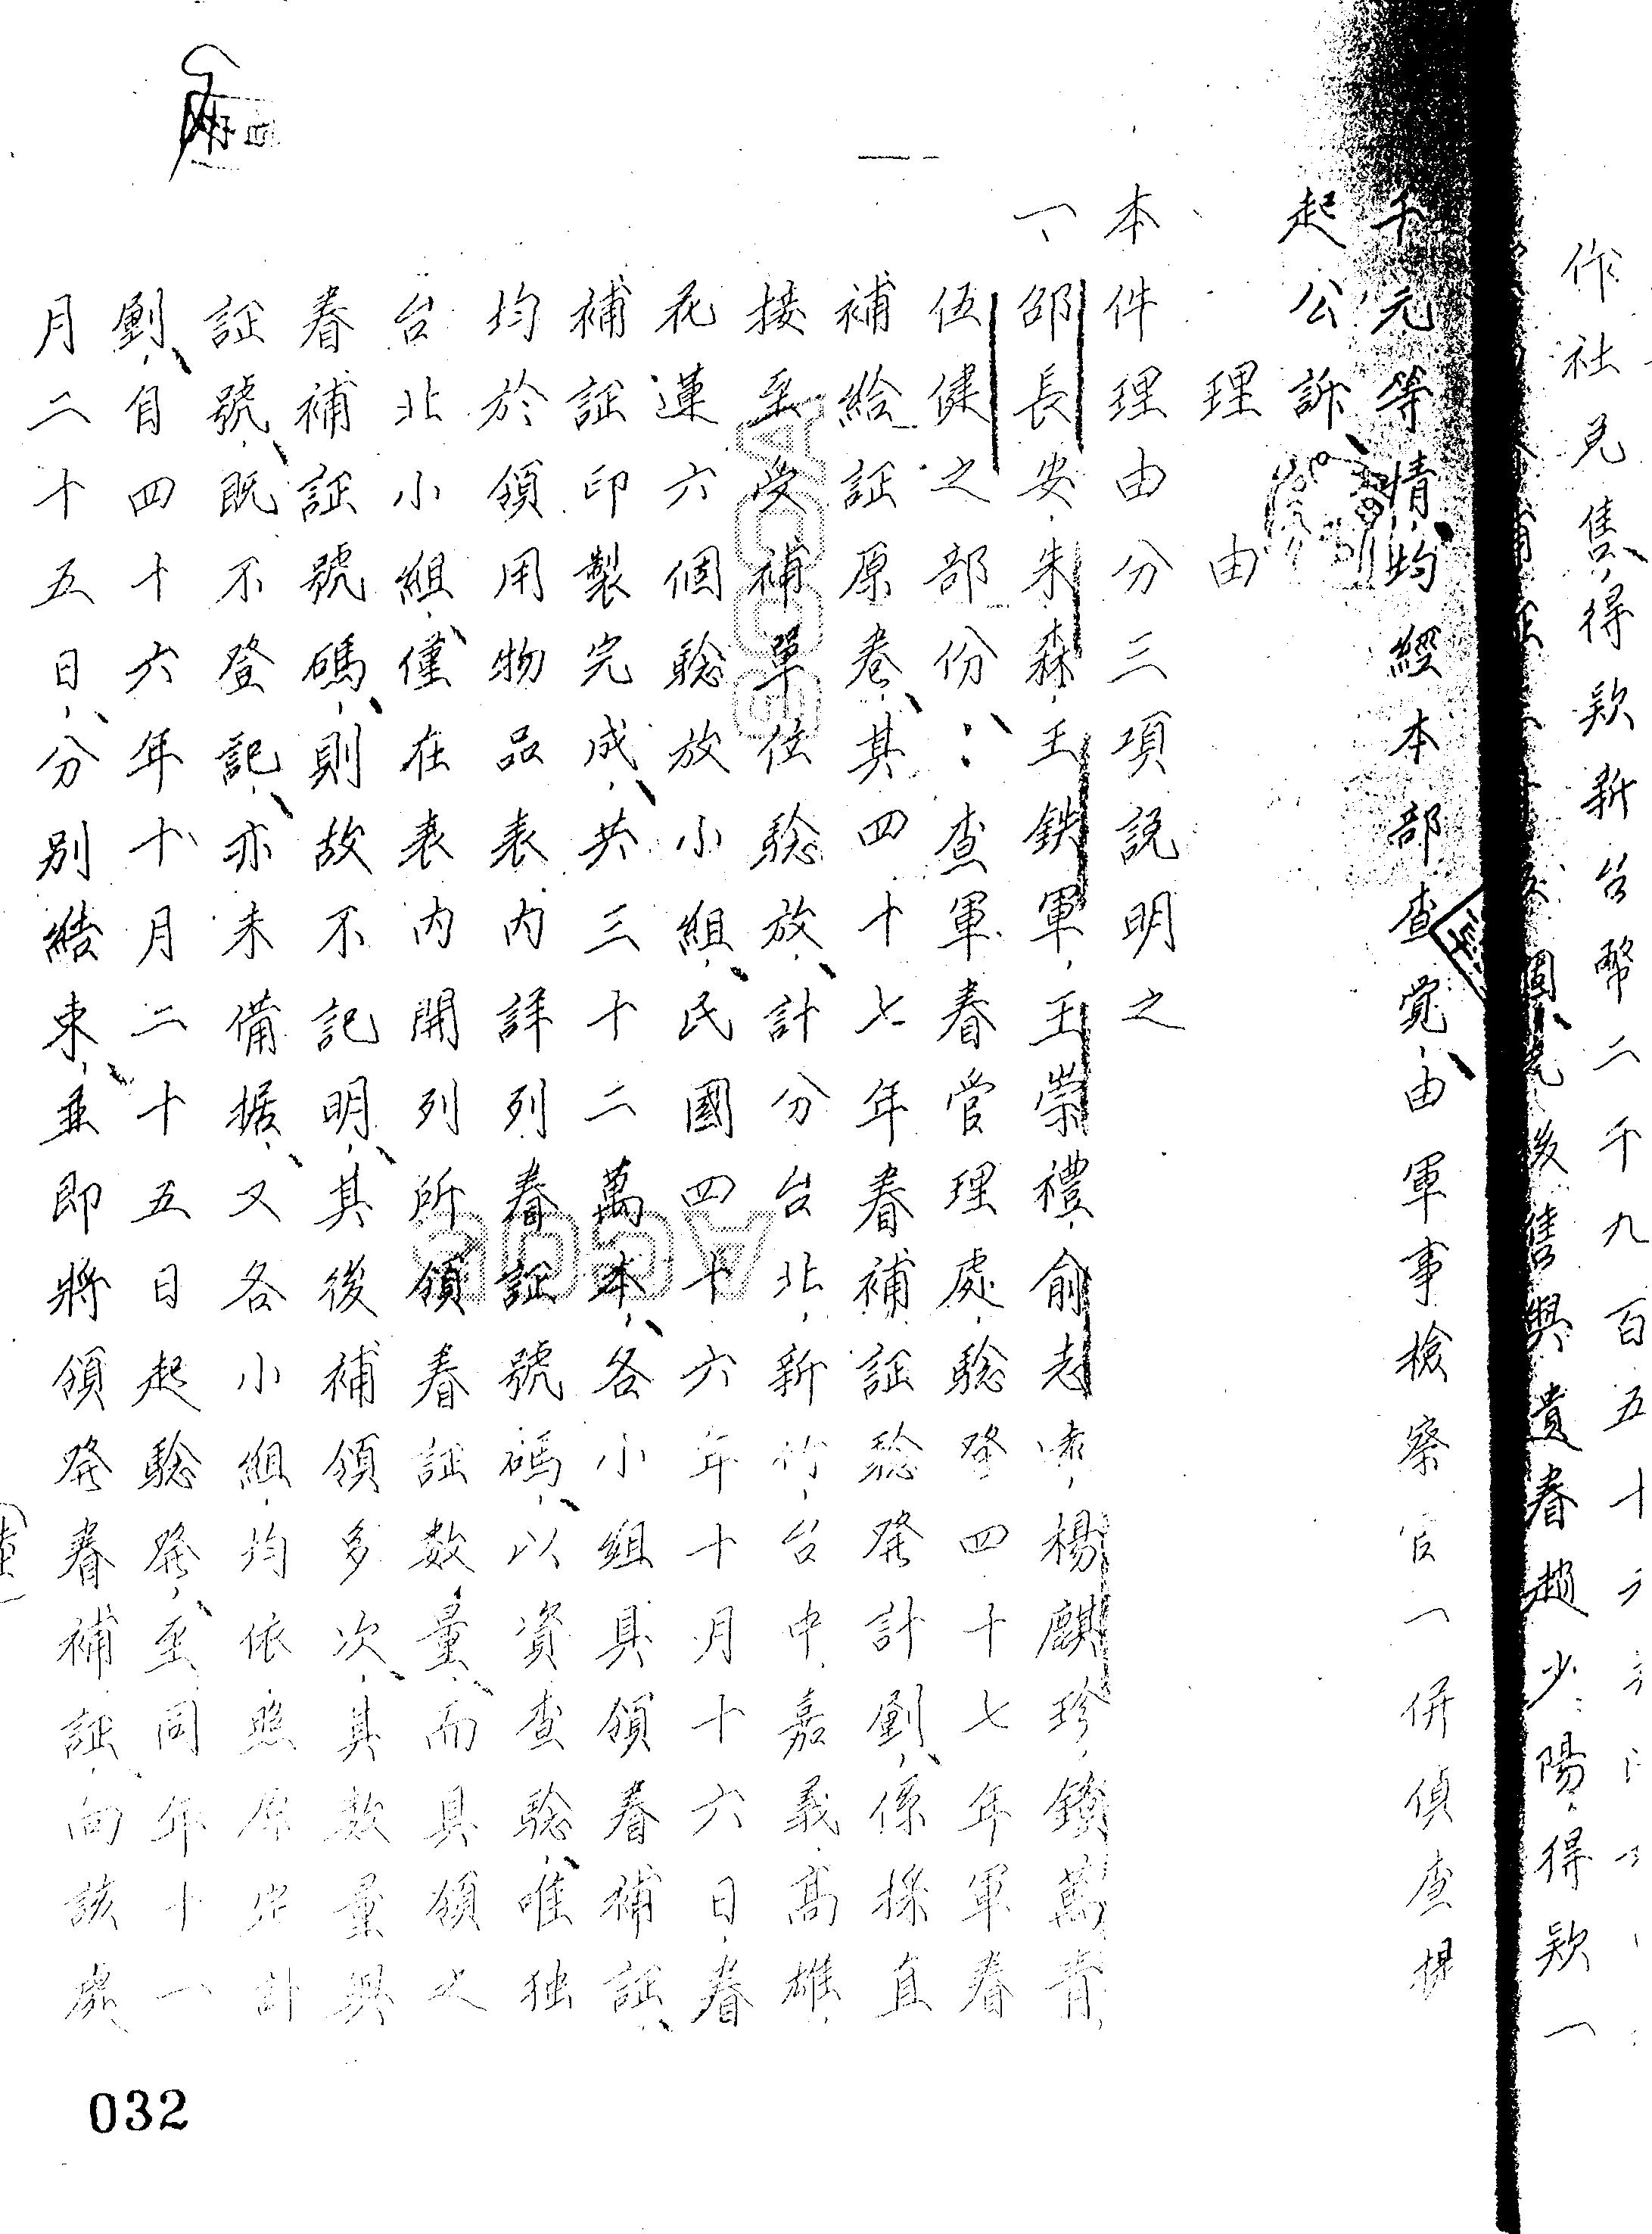 作社兌售,得款新台幣二千九百五十
後售與賣眷趙少陽,得款一
千元等情,均經本部查覺,由軍事檢察官一併偵查提
起公訴、
理由
本件理由分三項説明之
一、邵長安,朱森,王鉄軍,王崇禮,俞志
伍健之部份:查軍眷管理處,驗發四十七年軍眷
補給証原卷、其四十七年眷補証驗発計劃、係採直
接至受補單位驗放、計分台北,新竹,台中,嘉義,高雄,
花蓮六個驗放小組、民國四十六年十月十六日,眷
補証印製完成、共三十二萬本、各小組具領眷補証、
均於領用物品表內詳列眷証號碼、以資查驗、唯独
台北小組、僅在表內開列所領眷証数量、而具領之
眷補証號碼、則故不記明、其後補領多次、其数量與
証號、既不登記、亦未備据、又各小組,均依照原定計
劃、自四十六年十月二十五日起驗発、至同年十一
月二十五日、分別結束、並即將領発眷補証、向該處
032
ACCUS